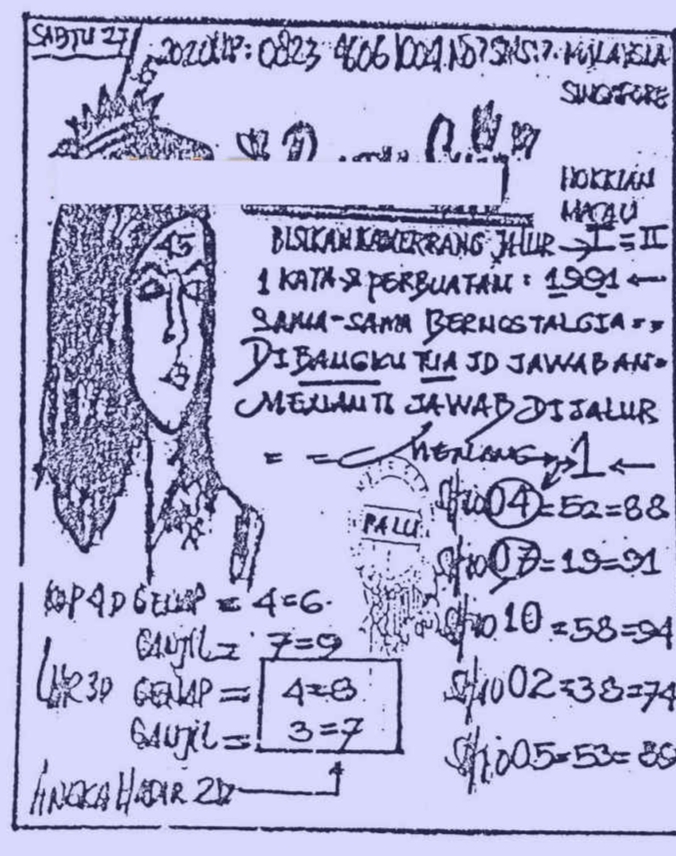 SABTU 27
2020 HP: 0823 4606 1004. NO? SMS:?. MALAYSIA
SINGAFORE
HOKKIAN
MACAU
45
BISIKAN JALUR → I = II
1 KATA PERBUATAN : 1991 ←
SAMA-SAMA BERNOSTALGIA = =
DIBANGKU TUA JD JAWABAN =
MENANTI JAWAB DIJALUR
= = MENANG → 1 ←
PALU
04 = 52 = 88
07 = 19 = 91
10 = 58 = 94
02 = 38 = 74
05 = 53 = 89
KOP 4D GENAP = 4=6
GANJIL = 7=9
EKR 3D GENAP = 4=8
GANJIL = 3=7
ANGKA HADIR 2D